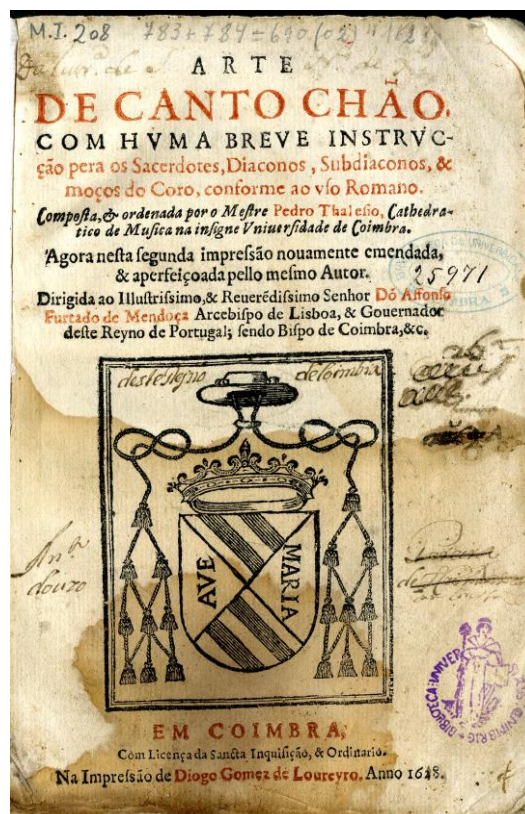 M.I. 208 783+784=690 (02) "162
ARTE
DE CANTO CHÃO.
COM HVMA BREVE INSTRVC-
ção pera os Sacerdotes, Diaconos, Subdiaconos, &
moços do Coro, conforme ao vſo Romano.
Compoſta, & ordenada por o Meſtre Pedro Thaleſio, Cathedra-
tico de Muſica na inſigne Vniuerſidade de Coimbra.
Agora neſta ſegunda impreſsão nouamente emendada,
& aperfeiçoada pello meſmo Autor.
25971
Dirigida ao Illuſtriſsimo, & Reuerẽdiſsimo Senhor Dõ Affonſo
Furtado de Mendoça Arcebiſpo de Lisboa, & Gouernador
deſte Reyno de Portugal; ſendo Biſpo de Coimbra, &c.
AVE
MARIA
EM COIMBRA,
Com Licença da Sancta Inquiſição, & Ordinario.
Na Impreſsão de Diogo Gomez de Loureyro. Anno 1628.